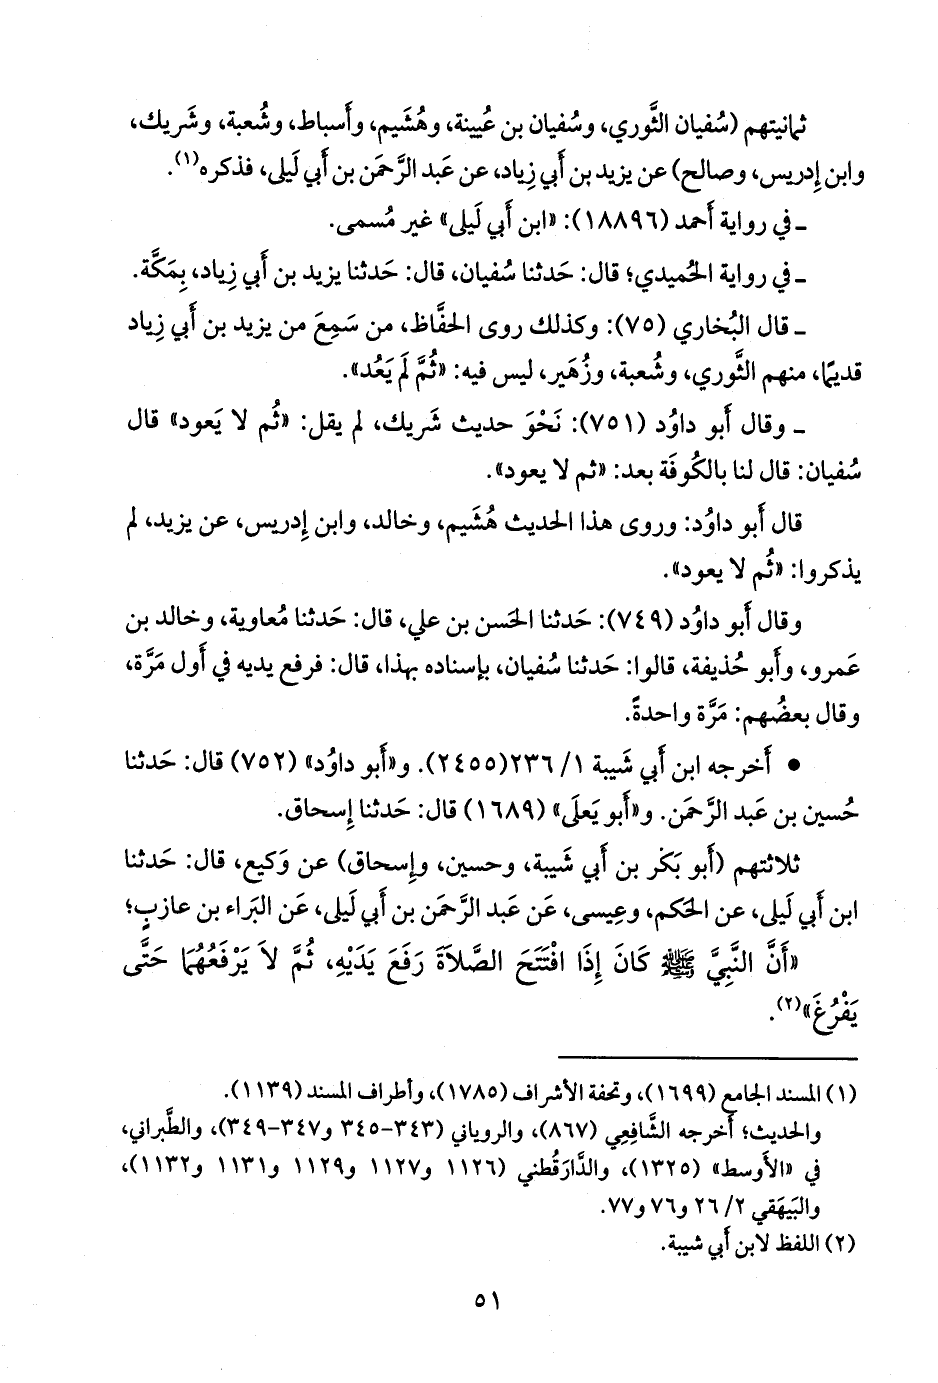 ثمانيتهم (سُفيان الثَّوري، وسُفيان بن عُيينة، وهُشَيم، وأَسباط، وشُعبة، وشَريك،
وابن إِدريس، وصالح) عن يزيد بن أَبي زِياد، عن عَبد الرَّحمَن بن أَبي لَيلى، فذكره(١).
ـ في رواية أَحمد (١٨٨٩٦): «ابن أَبي لَيلى» غير مُسمى.
ـ في رواية الحُميدي؛ قال: حَدثنا سُفيان، قال: حَدثنا يزيد بن أَبي زِياد، بِمَكَّة.
ـ قال البُخاري (٧٥): وكذلك روى الحفَّاظ، من سَمِعَ من يزيد بن أَبي زِياد
قديمًا، منهم الثَّوري، وشُعبة، وزُهَير، ليس فيه: «ثُمَّ لَم يَعُد».
ـ وقال أَبو داوُد (٧٥١): نَحْوَ حديث شَريك، لم يقل: «ثُم لا يَعود» قال
سُفيان: قال لنا بالكُوفَة بعد: «ثم لا يعود».
قال أَبو داوُد: وروى هذا الحديث هُشَيم، وخالد، وابن إِدريس، عن يزيد، لم
يذكروا: «ثُم لا يعود».
وقال أَبو داوُد (٧٤٩): حَدثنا الحَسن بن علي، قال: حَدثنا مُعاوية، وخالد بن
عَمرو، وأَبو حُذيفة، قالوا: حَدثنا سُفيان، بإسناده بهذا، قال: فرفع يديه في أَول مَرَّة،
وقال بعضُهم: مَرَّة واحدةً.
• أَخرجه ابن أَبي شَيبة ١/ ٢٣٦(٢٤٥٥). و«أَبو داوُد» (٧٥٢) قال: حَدثنا
حُسين بن عَبد الرَّحمَن. و«أَبو يَعلَى» (١٦٨٩) قال: حَدثنا إِسحاق.
ثلاثتهم (أَبو بَكر بن أَبي شَيبة، وحسين، وإِسحاق) عن وَكيع، قال: حَدثنا
ابن أَبي لَيلى، عن الحَكم، وعِيسى، عَن عَبد الرَّحمَن بن أَبي لَيلى، عَن البَراء بن عازبٍ؛
«أَنَّ النَّبِيَّ ﷺ كَانَ إِذَا افْتَتَحَ الصَّلاَةَ رَفَعَ يَدَيْهِ، ثُمَّ لاَ يَرْفَعُهُمَا حَتَّى
يَفْرُغَ»(٢).
(١) المسند الجامع (١٦٩٩)، وتحفة الأشراف (١٧٨٥)، وأطراف المسند (١١٣٩).
والحديث؛ أَخرجه الشَّافِعي (٨٦٧)، والروياني (٣٤٣-٣٤٥ و٣٤٧-٣٤٩)، والطَّبراني،
في «الأَوسط» (١٣٢٥)، والدَّارَقُطني (١١٢٦ و١١٢٧ و١١٢٩ و١١٣١ و١١٣٢)،
والبَيهَقي ٢/ ٢٦ و٧٦ و٧٧.
(٢) اللفظ لابن أَبي شيبة.
٥١